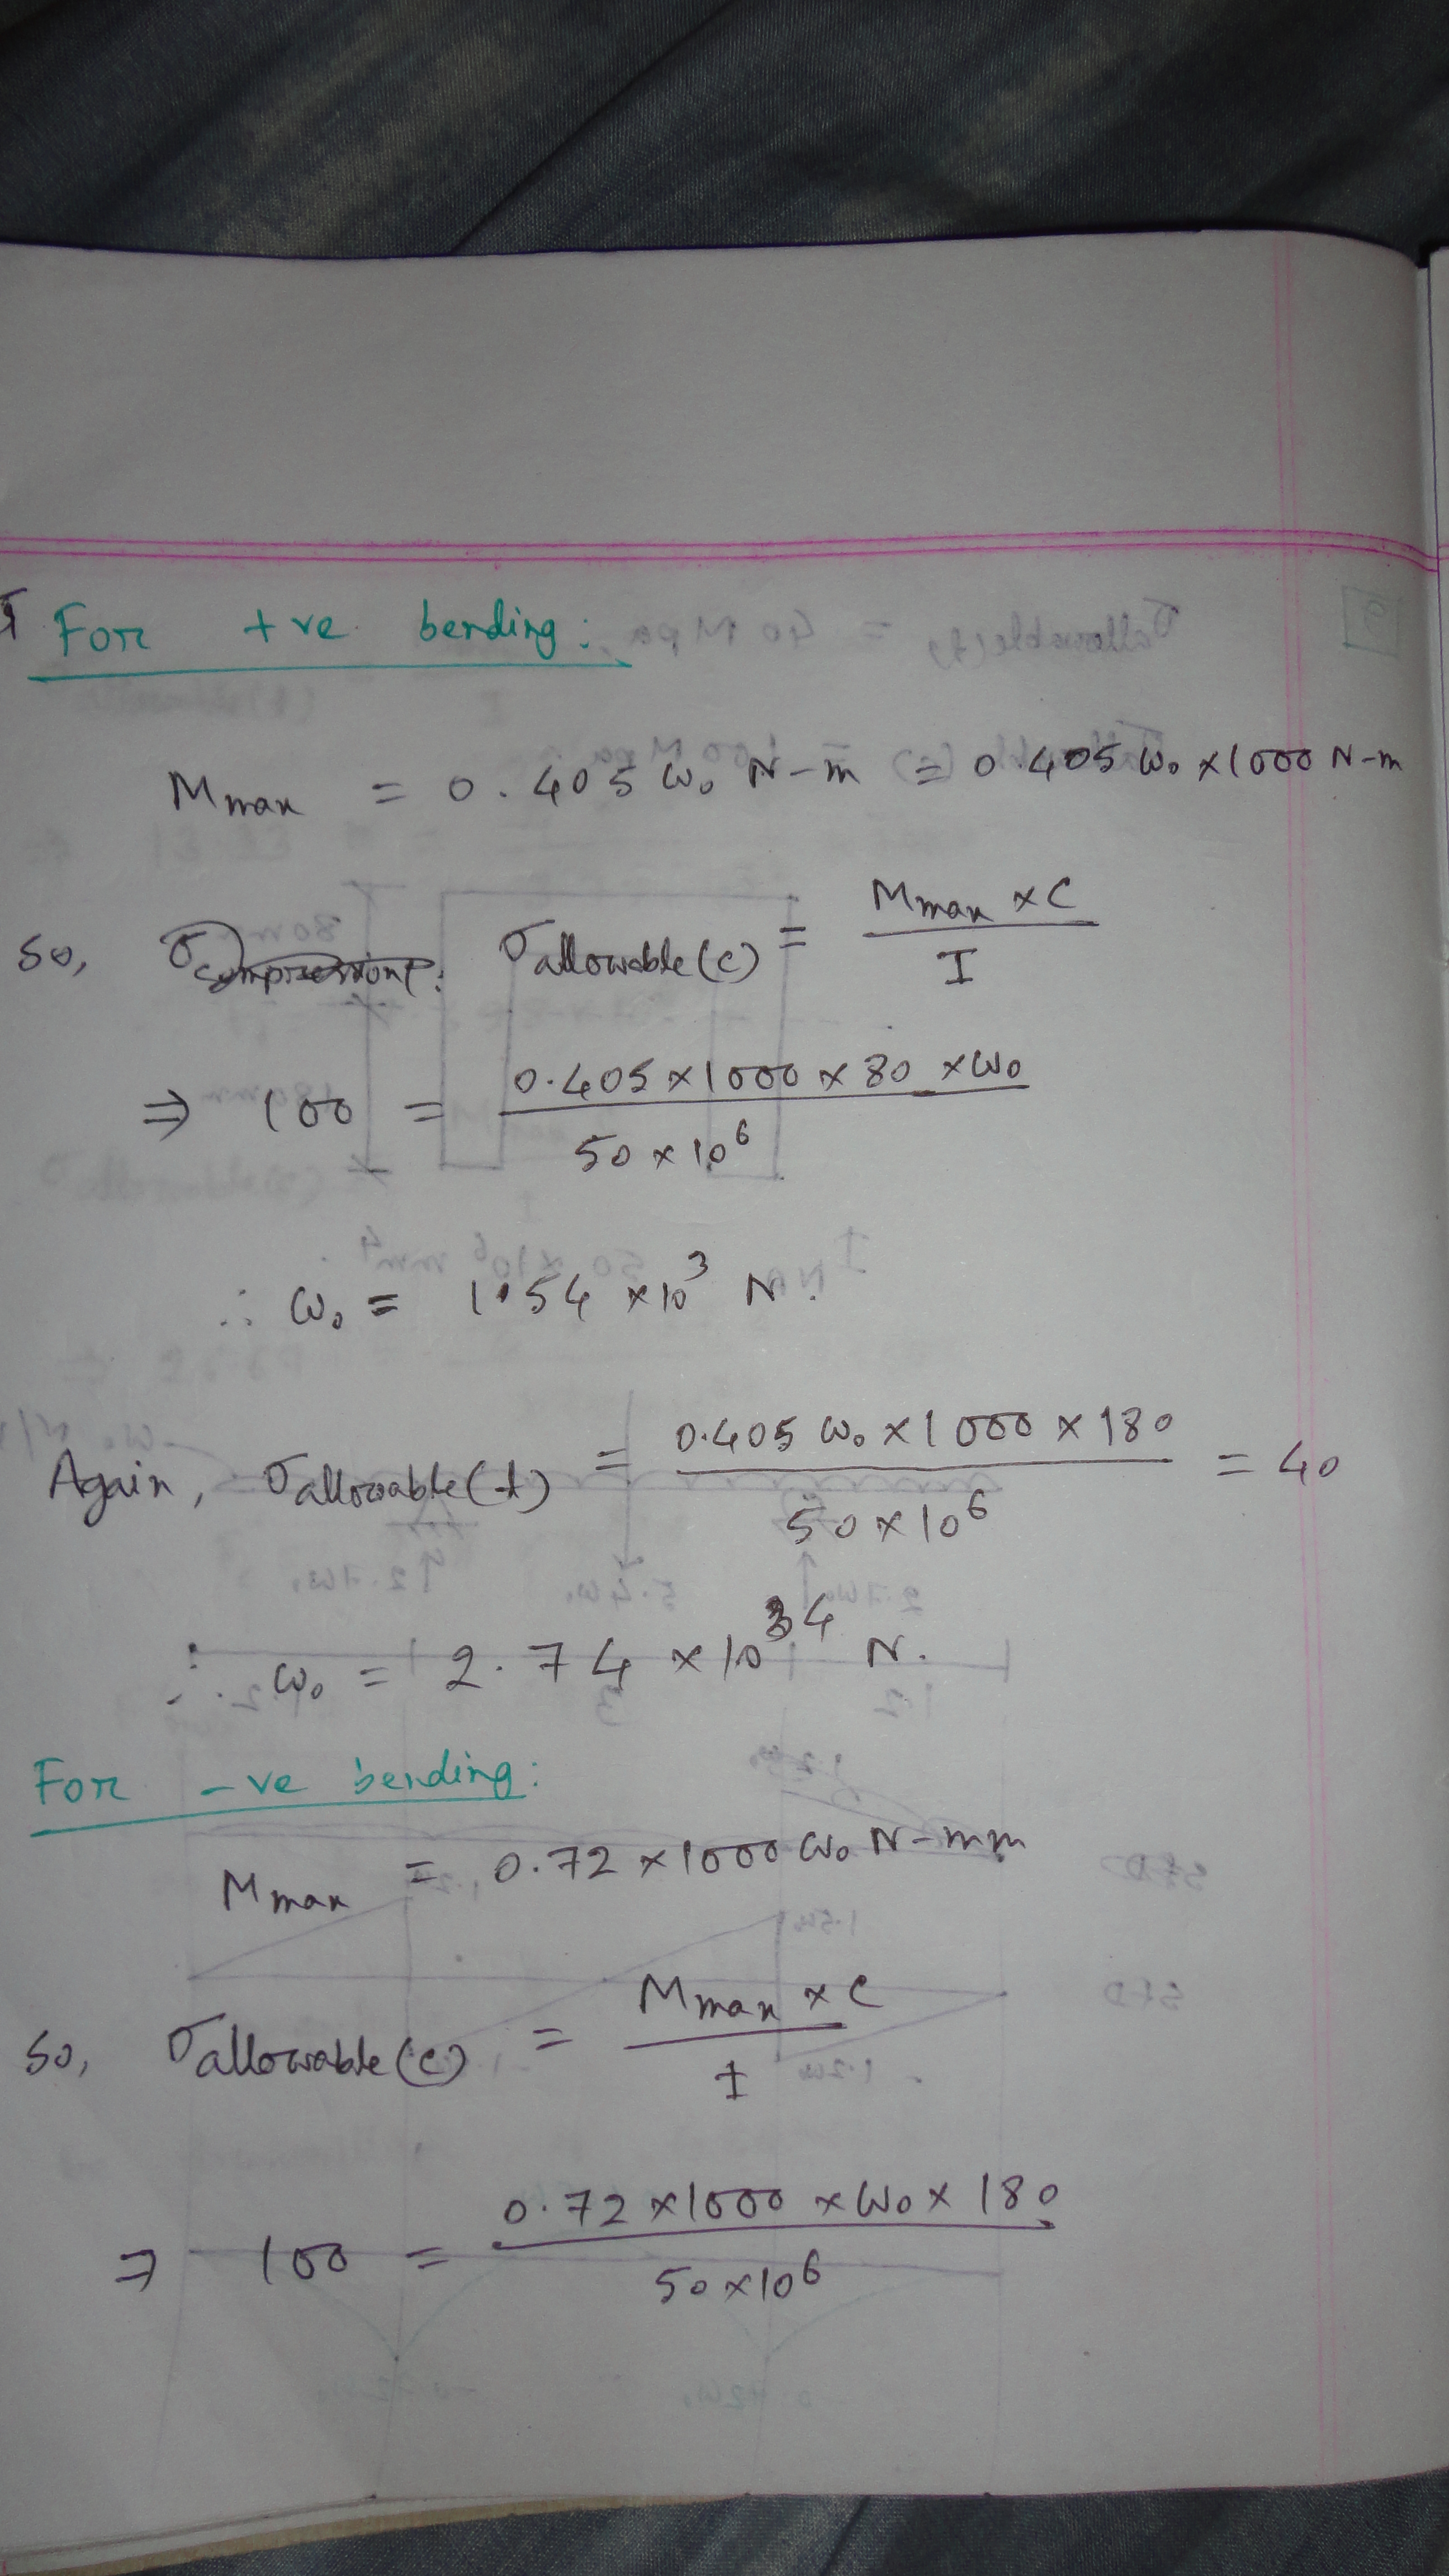 For +ve bending:
Mmax = 0.405 ω₀ N-m = 0.405 ω₀ x1000 N-m
So, σallowable(c) = Mmax x C / I
⇒ 100 = 0.405 x 1000 x 80 x ω₀ / 50 x 10⁶
∴ ω₀ = 1.54 x 10³ N.
Again, σallowable(t) = 0.405 ω₀ x 1000 x 180 / 50 x 10⁶ = 40
∴ ω₀ = 2.74 x 10⁴ N.
For -ve bending:
Mmax = 0.72 x 1000 ω₀ N-mm
So, σallowable(c) = Mmax x C / I
⇒ 100 = 0.72 x 1000 x ω₀ x 180 / 50 x 10⁶